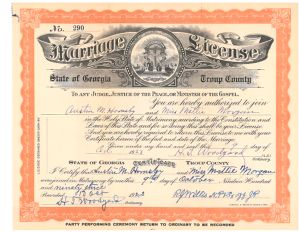 No. 290
Marriage License
State of Georgia Troup County
TO ANY JUDGE, JUSTICE OF THE PEACE, OR MINISTER OF THE GOSPEL.
You are hereby authorized to join
Austin M. Hornsby and Miss Mettie Morgan
in the Holy State of Matrimony according to the Constitution and
Laws of this State and for so doing this shall be your sufficient License.
And you are hereby required to return this License to me with your
Certificate hereon of the fact and date of the Marriage.
Given under my hand and seal this
STATE OF GEORGIA Certificate TROUP COUNTY
I Certify that Austin M. Hornsby and Miss Mettie Morgan
were joined in Matrimony by me this 9th day of October Nineteen Hundred
and
Recorded Oct
PARTY PERFORMING CEREMONY RETURN TO ORDINARY TO BE RECORDED